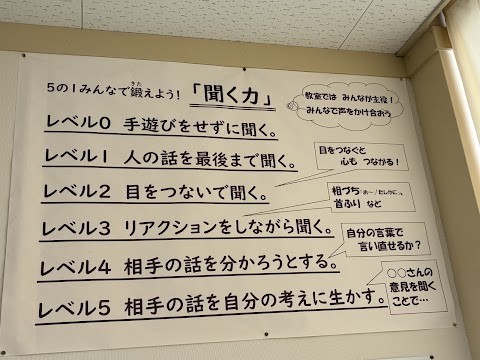 5の1みんなで鍛えよう!「聞く力」
きた
教室では みんなが主役!
みんなで声をかけ合おう
レベル0 手遊びをせずに聞く。
レベル1 人の話を最後まで聞く。
目をつなぐと
心も つながる!
レベル2 目をつないで聞く。
相づち
首ふり など
レベル3 リアクションをしながら聞く。
自分の言葉で
言い直せるか?
レベル4 相手の話を分かろうとする。
○○さんの
意見を聞く
ことで…
レベル5 相手の話を自分の考えに生かす。